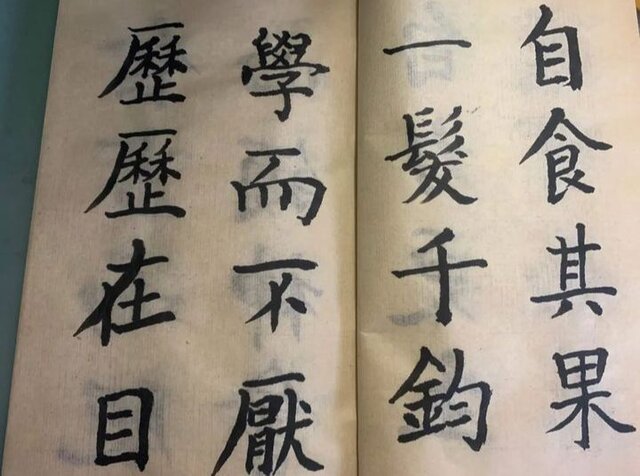 自食其果
一髮千鈞
學而不厭
歷歷在目